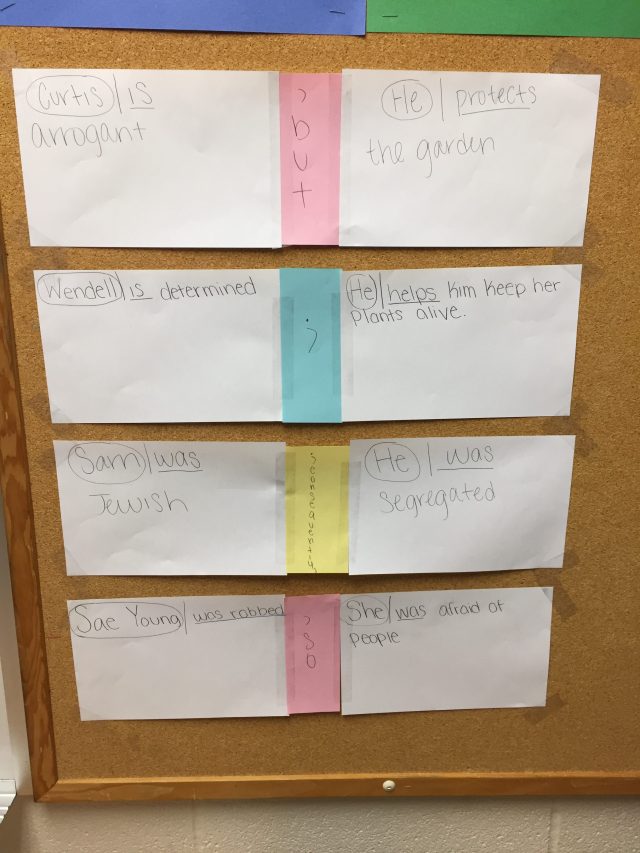 Curtis | is
arrogant
, but
He | protects
the garden
Wendell | is determined
;
He | helps Kim keep her
plants alive.
Sam | was
Jewish
; consequently,
He | was
segregated
Sae Young | was robbed
, so
She | was afraid of
people